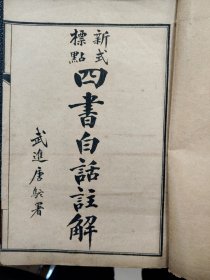 新式
標點
四書白話註解
武進唐駝署